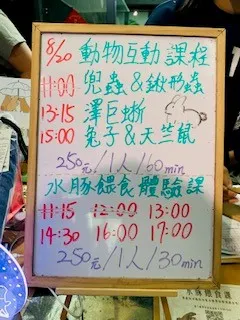 8/20 動物互動課程
11:00 兜蟲&鍬形蟲
13:15 澤巨蜥
15:00 兔子&天竺鼠
250元/1人/60min
水豚餵食體驗課
11:15 12:00 13:00
14:30 16:00 17:00
250元/1人/30min